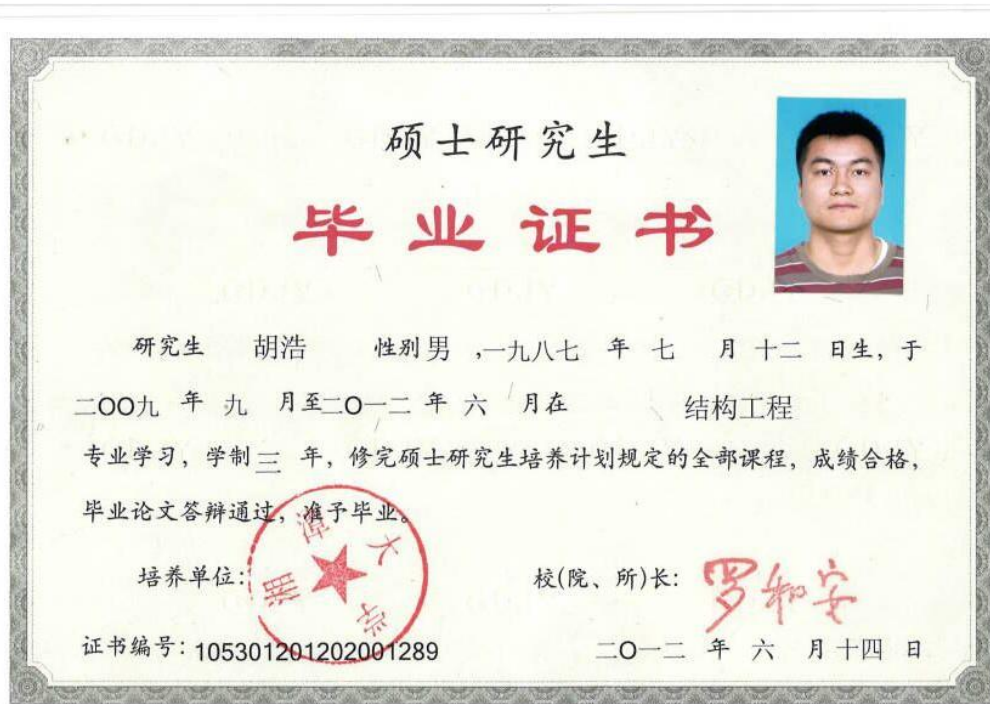 硕士研究生
毕业证书
研究生 胡浩 性别 男 ,一九八七 年 七 月 十二 日生，于
二OO九 年 九 月至二O一二 年 六 月在 结构工程
专业学习，学制 三 年，修完硕士研究生培养计划规定的全部课程，成绩合格，
毕业论文答辩通过，准予毕业。
湘潭大学
培养单位： 校(院、所)长： 罗和安
证书编号：105301201202001289 二O一二 年 六 月 十四 日